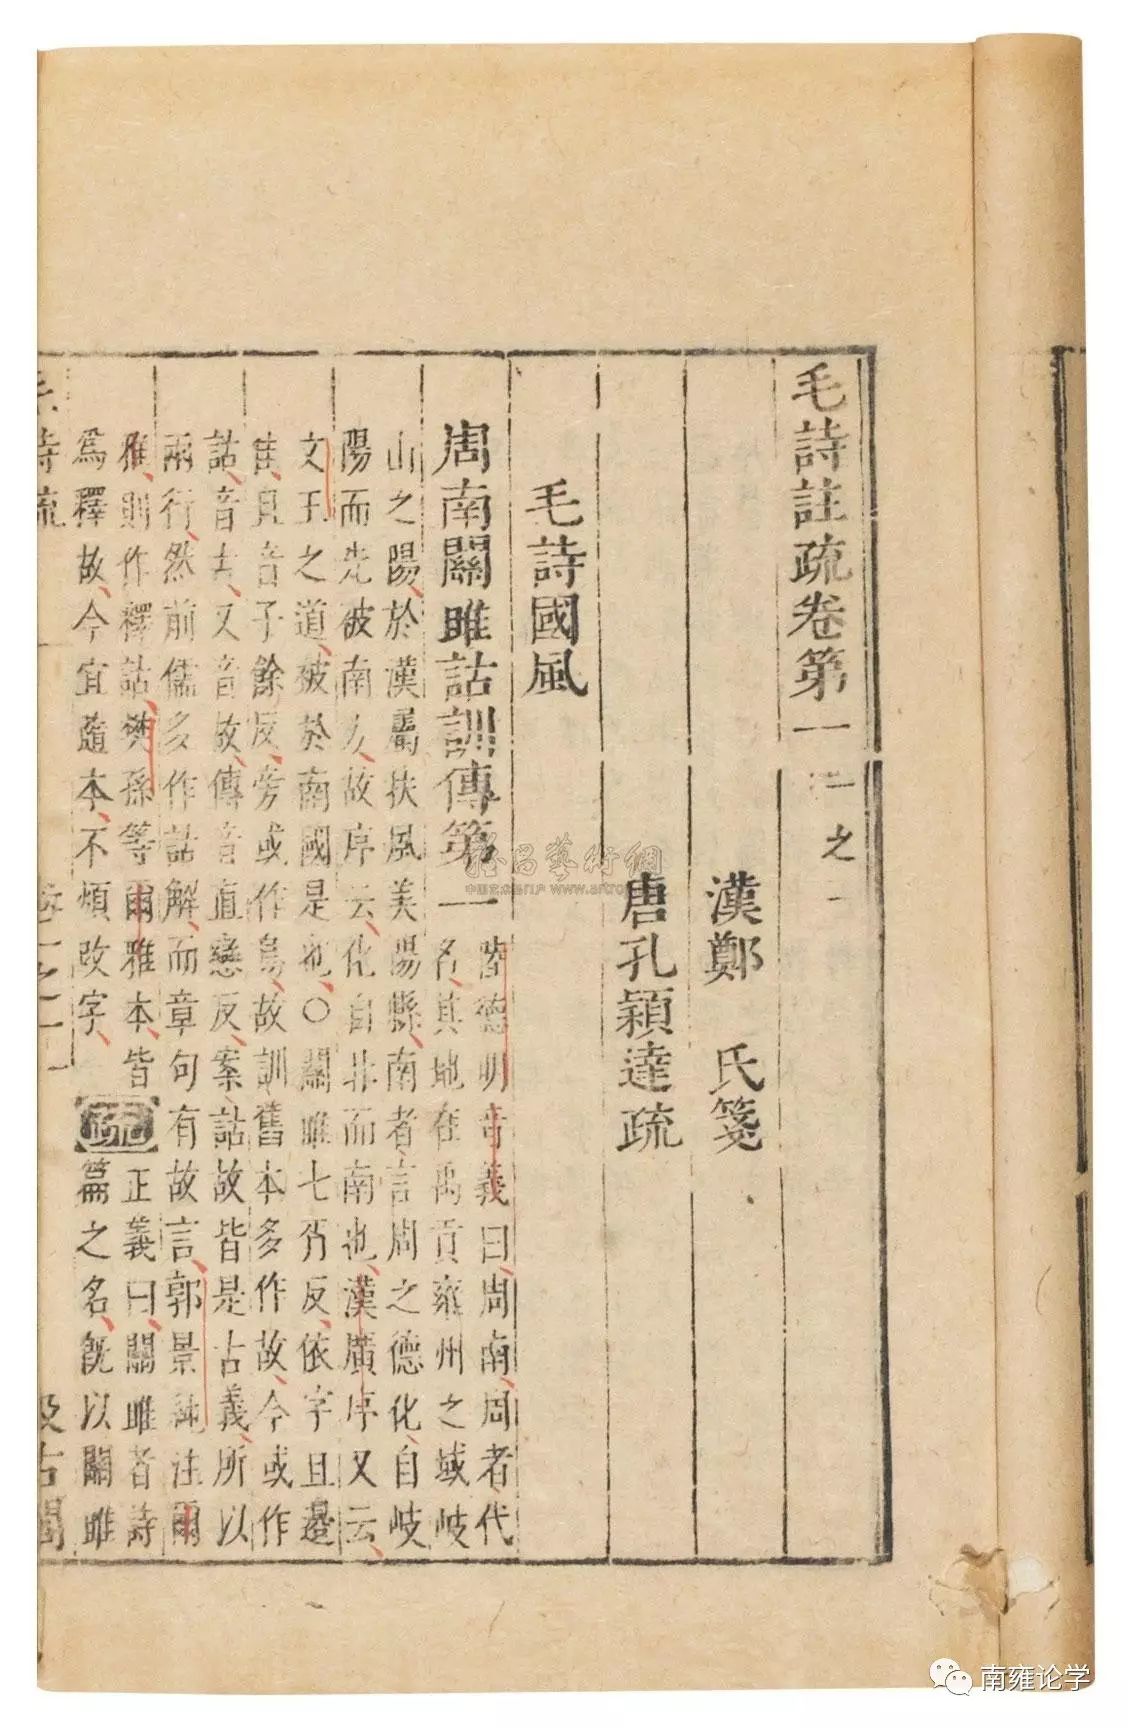 毛詩註疏卷第一 一之一
漢鄭 氏箋
唐孔穎達疏
毛詩國風
周南關雎詁訓傳第一
陸德明音義曰周南周者代
名其地在禹貢雍州之域岐
山之陽於漢屬扶風美陽縣南者言周之德化自岐
陽而先被南方故序云化自北而南也漢廣序又云
文王之道被於南國是也○關雎七胥反依字且邊
隹且音子餘反旁或作鳥故訓舊本多作故今或作
詁音古又音故傳音直戀反案詁故皆是古義所以
兩行然前儒多作詁解而章句有故言郭景純注爾
雅則作釋詁樊孫等爾雅本皆
爲釋故今宜隨本不煩改字
疏
正義曰關雎者詩
篇之名旣以關雎
毛詩疏 卷一之一 一 汲古閣
南雍论学